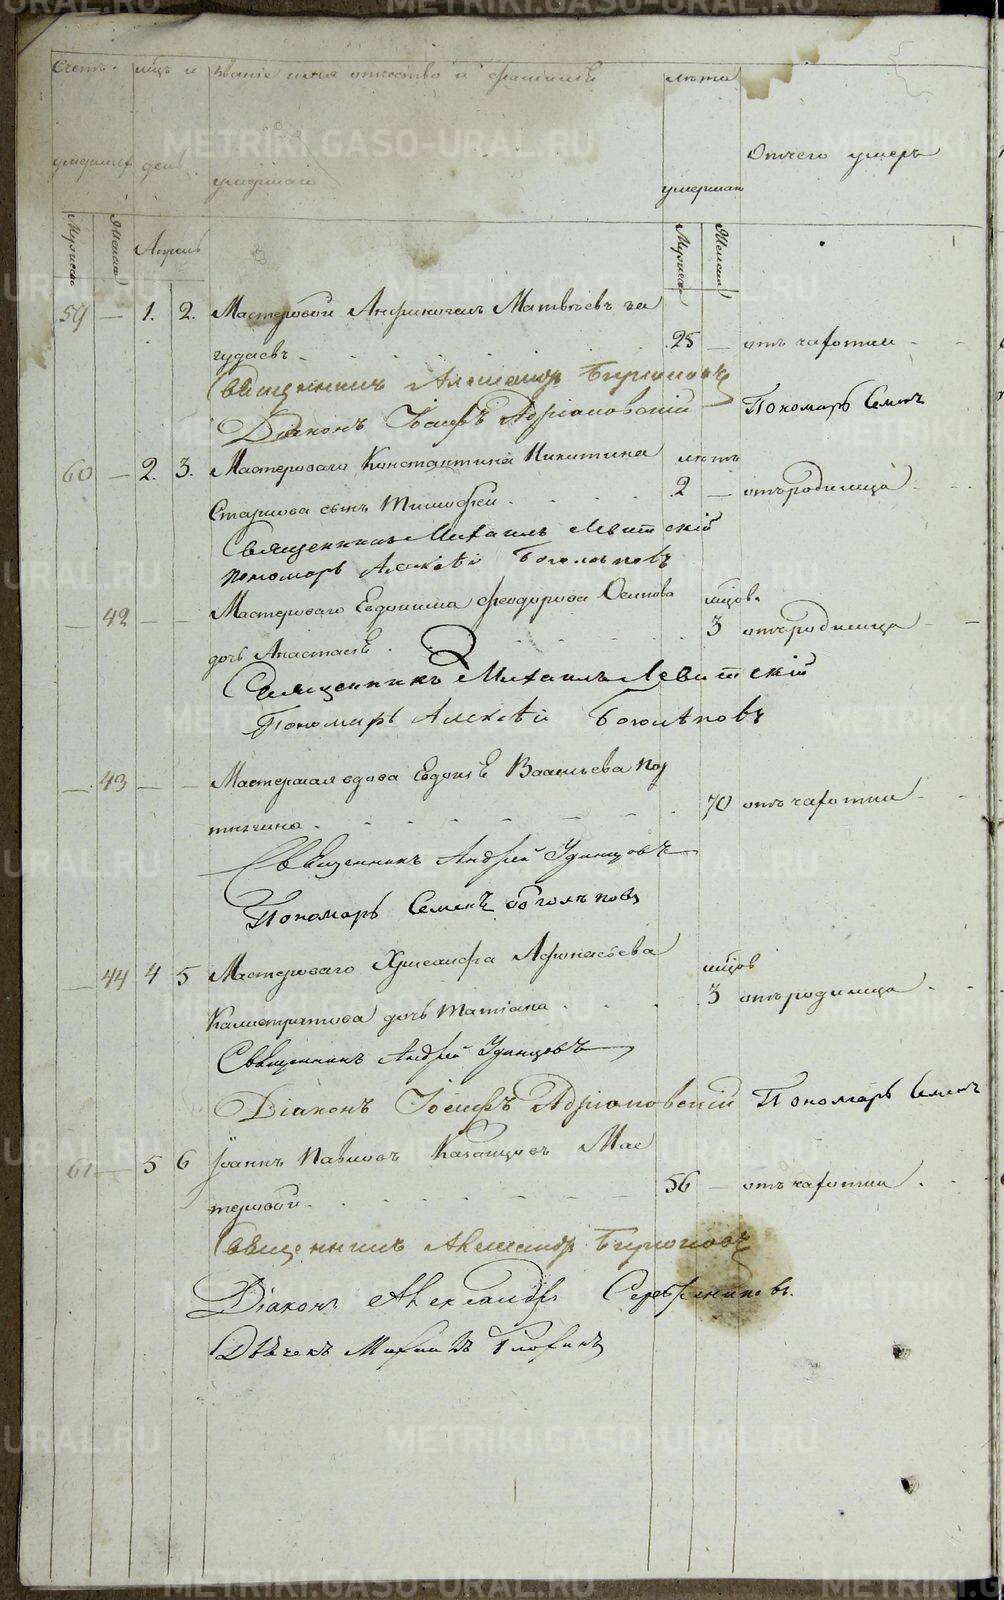 Счетъ мцъ и званіе имя отчество и фамилія лѣта
умершихъ день умершаго умершаго Отчего умеръ
Мужеска Женска Апрель Мужеска Женска
59 — 1. 2. Мастеровой Анфиногенъ Матвѣевъ Ча
гудаевъ 25 — отъ чахотки
Священникъ Александр Бирюковъ
Діаконъ Іосифъ Адріановскій Пономарь Семенъ
60 — 2. 3. Мастероваго Константина Никитина лѣтъ
сынъ Тимофей 2 — отъ родимца
Священникъ Михаилъ Левитскій
пономарь Алексѣй Боголѣповъ
— 42 — — Мастероваго Евдокима Феодорова Осипова мцов.
дочь Анастасія 3 отъ родимца
Священникъ Михаилъ Левитскій
Пономарь Алексѣй Боголѣповъ
— 43 — — Мастерская вдова Евдокія Васильева
70 отъ чахотки
Священникъ Андрей Удинцовъ
Пономарь Семенъ Боголѣповъ
— 44 4 5 Мастероваго Хрисанфа Афонасьева мцов
Калистратова дочь Татіана 3 отъ родимца
Священникъ Андрей Удинцовъ
Діаконъ Іосифъ Адріановскій Пономарь Семенъ
61 — 5 6 Іоаннъ Павловъ Казанцовъ Мас
теровой 56 — отъ чахотки
Священникъ Александр Бирюковъ
Діаконъ Александръ Серебрениковъ.
Дьячекъ Михаилъ
METRIKI.GASO-URAL.RU